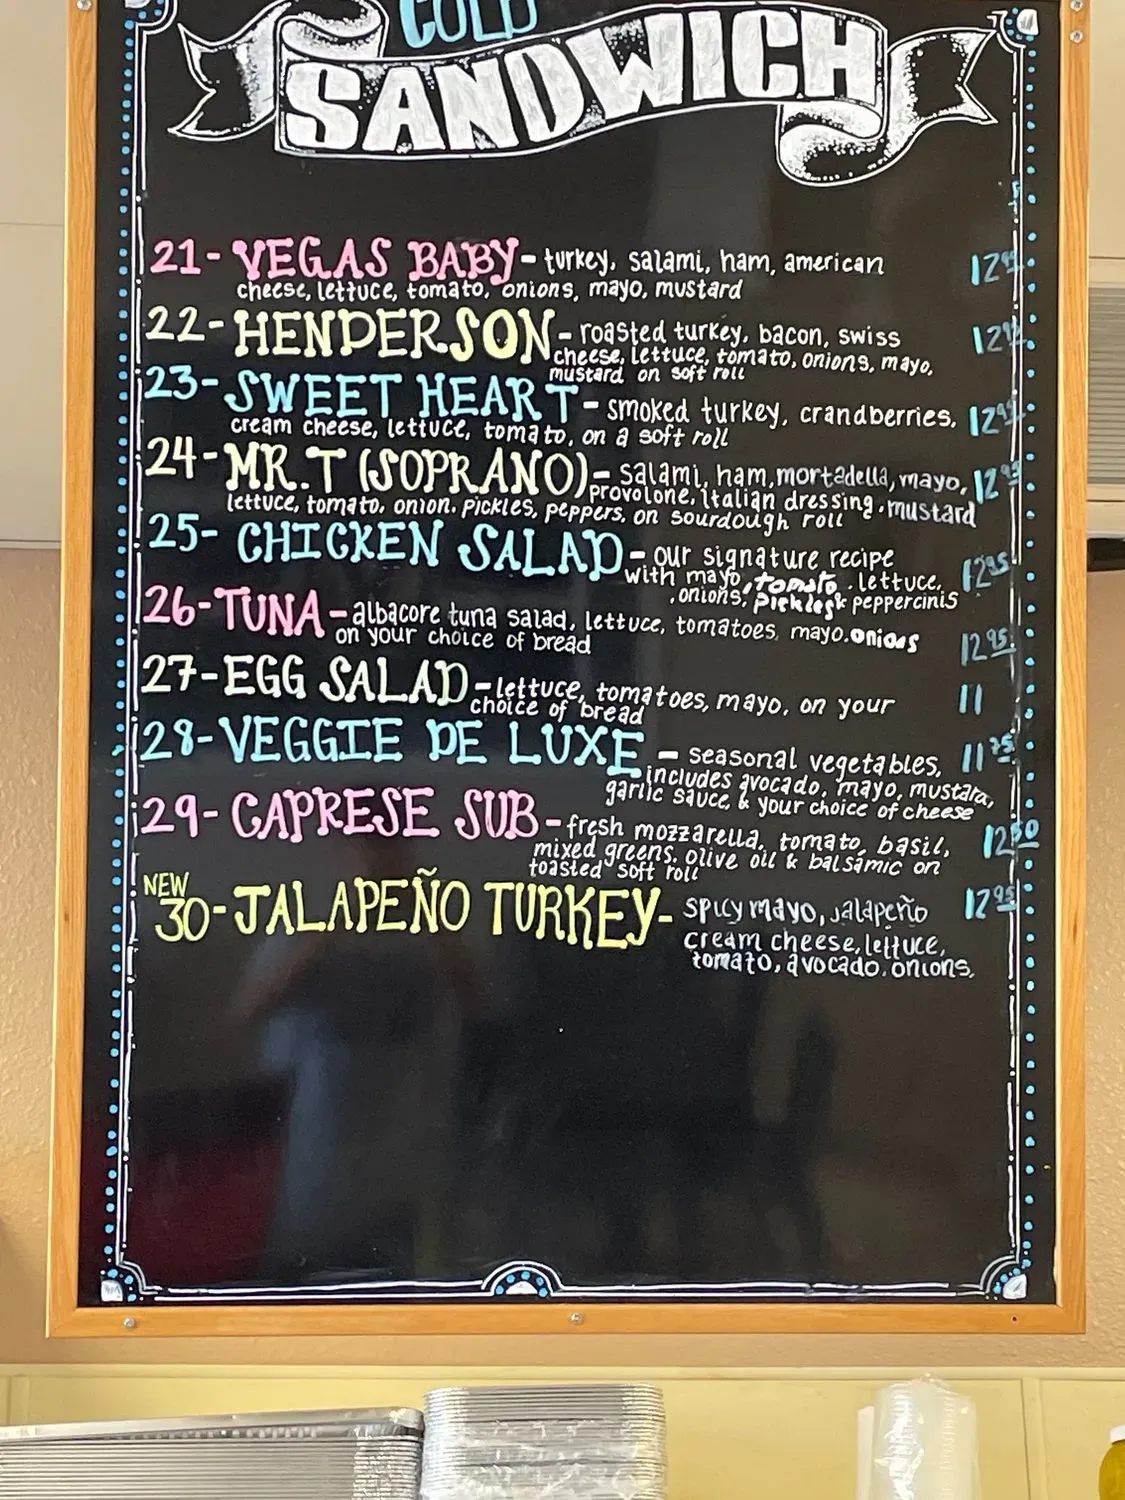 COLD
SANDWICH
21- VEGAS BABY - turkey, salami, ham, american 12
cheese, lettuce, tomato, onions, mayo, mustard
22- HENDERSON - roasted turkey, bacon, swiss 12
cheese, lettuce, tomato, onions, mayo,
mustard on soft roll
23- SWEET HEART - smoked turkey, crandberries, 12
cream cheese, lettuce, tomato, on a soft roll
24- MR.T (SOPRANO) - salami, ham, mortadella, mayo, 12
provolone, italian dressing, mustard
lettuce, tomato, onion, pickles, peppers, on sourdough roll
25- CHICKEN SALAD - our signature recipe 12 95
with mayo, tomato, lettuce,
, onions, pickles & peppercinis
26- TUNA - albacore tuna salad, lettuce, tomatoes, mayo, onions
on your choice of bread 12 95
27- EGG SALAD - lettuce, tomatoes, mayo, on your 11
choice of bread
28- VEGGIE DE LUXE - seasonal vegetables, 11 75
includes avocado, mayo, mustard,
garlic sauce, & your choice of cheese
29- CAPRESE SUB - fresh mozzarella, tomato, basil, 12 50
mixed greens, olive oil & balsamic on
toasted soft roll
NEW
30- JALAPEÑO TURKEY - spicy mayo, jalapeño 12 95
cream cheese, lettuce,
tomato, avocado, onions,